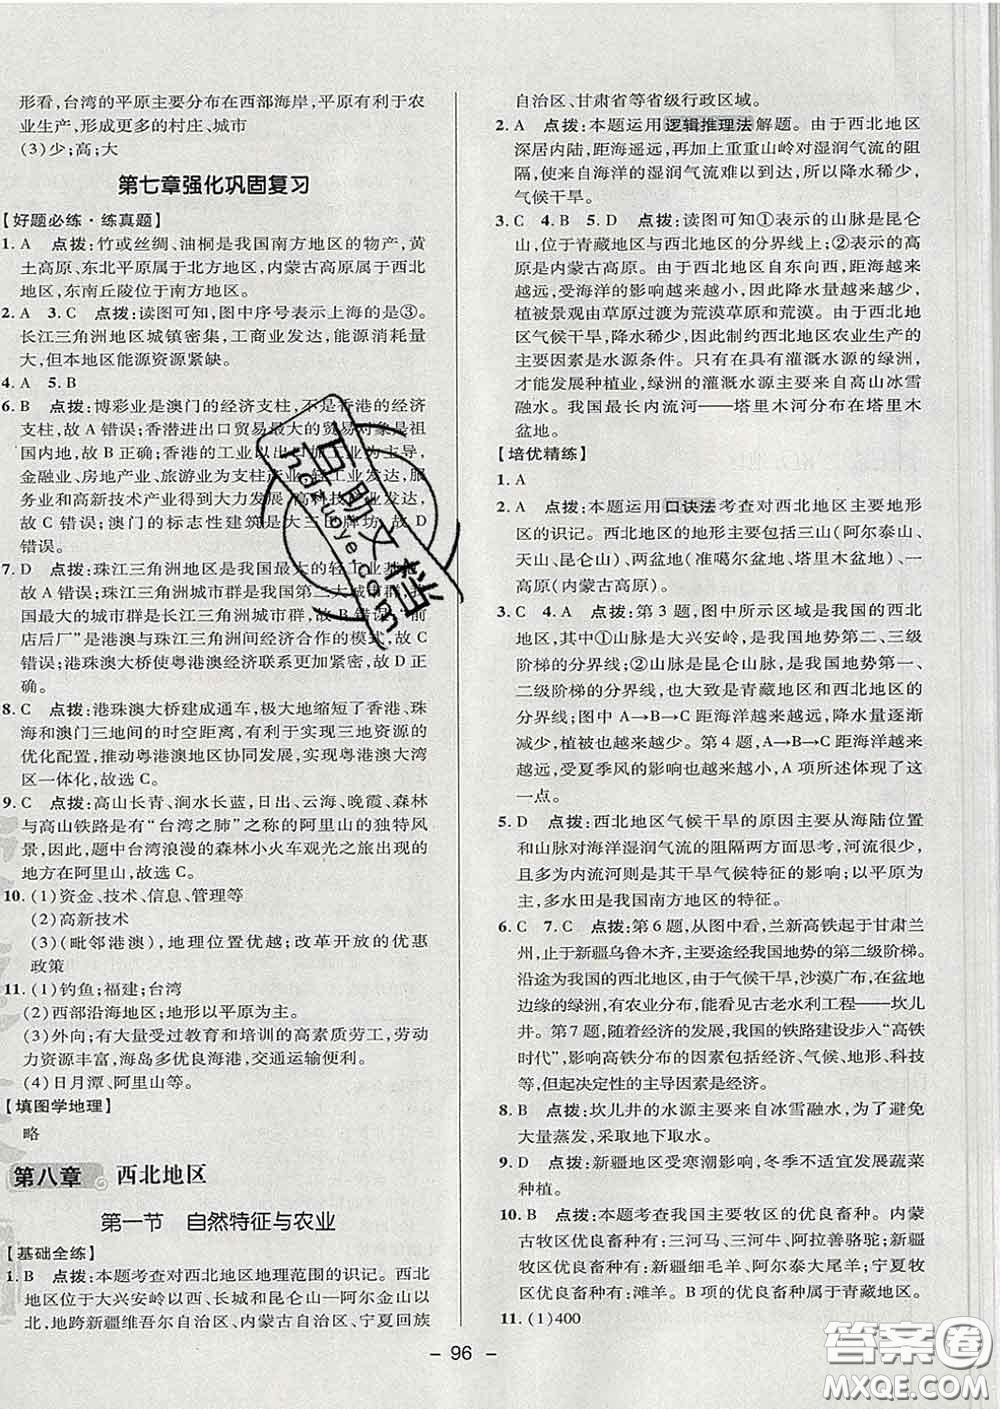 形看,台湾的平原主要分布在西部海岸,平原有利于农
业生产,形成更多的村庄、城市
(3)少;高;大
第七章强化巩固复习
【好题必练·练真题】
1. A 点拨:竹或丝绸、油桐是我国南方地区的物产,黄
土高原、东北平原属于北方地区,内蒙古高原属于西北
地区,东南丘陵位于南方地区。
2. A 3. C 点拨:读图可知,图中序号表示上海的是③。
长江三角洲地区城镇密集,工商业发达,能源消耗量
大,但本地区能源资源紧缺。
4. A 5. B
6. B 点拨:博彩业是澳门的经济支柱,不是香港的经济
支柱,故A错误;香港进出口贸易最大的贸易对象是祖
国内地,故B正确;香港的工业以为主导,
金融业、房地产业、旅游业为支柱,轻工业发达,服
务业和高新技术产业得到大力发展,高科技发达,
故C错误;澳门的标志性建筑是大三巴牌坊,故D
错误。
7. D 点拨:珠江三角洲地区是我国最大的轻工业基地,
故A错误;珠江三角洲城市群是我国第二大城市群,我
国最大的城市群是长江三角洲城市群,故B错误;“前
店后厂”是港澳与珠江三角洲间经济合作的模式,故C
错误;港珠澳大桥使粤港澳经济联系更加紧密,故D正
确。
8. C 点拨:港珠澳大桥建成通车,极大地缩短了香港、珠
海和澳门三地间的时空距离,有利于实现三地资源的
优化配置,推动粤港澳地区协同发展,实现粤港澳大湾
区一体化,故选C。
9. C 点拨:高山长青、涧水长蓝,日出、云海、晚霞、森林
与高山铁路是有“台湾之肺”之称的阿里山的独特风
景,因此,题中台湾浪漫的森林小火车观光之旅所在的
地方在阿里山,故选C。
10. (1)资金、技术、信息、管理等
(2)高新技术
(3)(毗邻港澳),地理位置优越;改革开放的优惠
政策
11. (1)钓鱼;福建;台湾
(2)西部沿海地区;地形以平原为主。
(3)外向;有大量受过教育和培训的高素质劳工,劳动
力资源丰富,海岛多优良海港,交通运输便利。
(4)日月潭、阿里山等。
【填图学地理】
略
第八章 西北地区
第一节 自然特征与农业
【基础全练】
1. B 点拨:本题考查对西北地区地理范围的识记。西北
地区位于大兴安岭以西、长城和昆仑山—阿尔金山以
北,地跨新疆维吾尔自治区、内蒙古自治区、宁夏回族
自治区、甘肃省等省级行政区域。
2. A 点拨:本题运用逻辑推理法解题。由于西北地区
深居内陆,距海遥远,再加上重重山岭对湿润气流的阻
隔,使来自海洋的湿润气流难以到达,所以降水稀少,
气候干旱。
3. C 4. B 5. D 点拨:读图可知①表示的山脉是昆仑
山,为青藏地区与西北地区的分界线上;②表示的高
原是内蒙古高原。由于西北地区自东向西,距海越来
越远,受海洋的影响越来越小,因此降水越来越少,
植被景观由草原过渡为荒漠草原和荒漠。由于西北地
区气候干旱,降水稀少,因此制约西北地区农业生产的
主要因素是水源条件。只有在具有灌溉水源的绿洲,
才能发展种植业,绿洲的灌溉水源主要来自高山冰雪
融水。我国最长内流河——塔里木河分布在塔里木
盆地。
【培优精练】
1. A
2. A 点拨:本题运用口诀法考查对西北地区主要地形
区的识记。西北地区的地形主要包括三山(阿尔泰山、
天山、昆仑山)、两盆地(准噶尔盆地、塔里木盆地)、一
高原(内蒙古高原)。
3. C 4. A 点拨:第3题,图中所示区域是我国的西北
地区,其中①山脉是大兴安岭,是我国地势第二、三级
阶梯的分界线;②山脉是昆仑山脉,是我国地势第一、
二级阶梯的分界线,也大致是青藏地区和西北地区的
分界线;图中A→B→C距海洋越来越远,降水量逐渐
减少,植被也越来越少。第4题,A→B→C距海洋越来
越远,受夏季风的影响也越来越小,A项所述体现了这
一点。
5. D 点拨:西北地区气候干旱的原因主要从海陆位置
和山脉对海洋湿润气流的阻隔两方面思考,河流很少,
且多为内流河则是其干旱气候特征的体现;以平原为主,
多水田是我国南方地区的特征。
6. C 7. C 点拨:第6题,从图中看,兰新高铁起于甘肃兰
州,止于新疆乌鲁木齐,主要途经我国地势的第二级阶梯。
沿途为我国的西北地区,由于气候干旱,沙漠广布,在盆地
边缘的绿洲,有农业分布,能看见古老水利工程——坎儿
井。第7题,随着经济的发展,我国的铁路建设步入“高铁
时代”,影响高铁分布的因素包括经济、气候、地形、科技
等,但起决定性的主导因素是经济。
8. B 点拨:坎儿井的水源主要来自冰雪融水,为了避免
大量蒸发,采取地下取水。
9. D 点拨:新疆地区受寒潮影响,冬季不适宜发展蔬菜
种植。
10. B 点拨:本题考查我国主要牧区的优良畜种。内蒙
古牧区优良畜种有:三河马、三河牛、阿拉善骆驼;新疆
牧区优良畜种有:新疆细毛羊、伊犁马;宁夏牧
区优良畜种有:滩羊。B项的优良畜种属于青藏地区。
11. (1)400
- 96 -
百助文档
答案圈
MXQE.COM